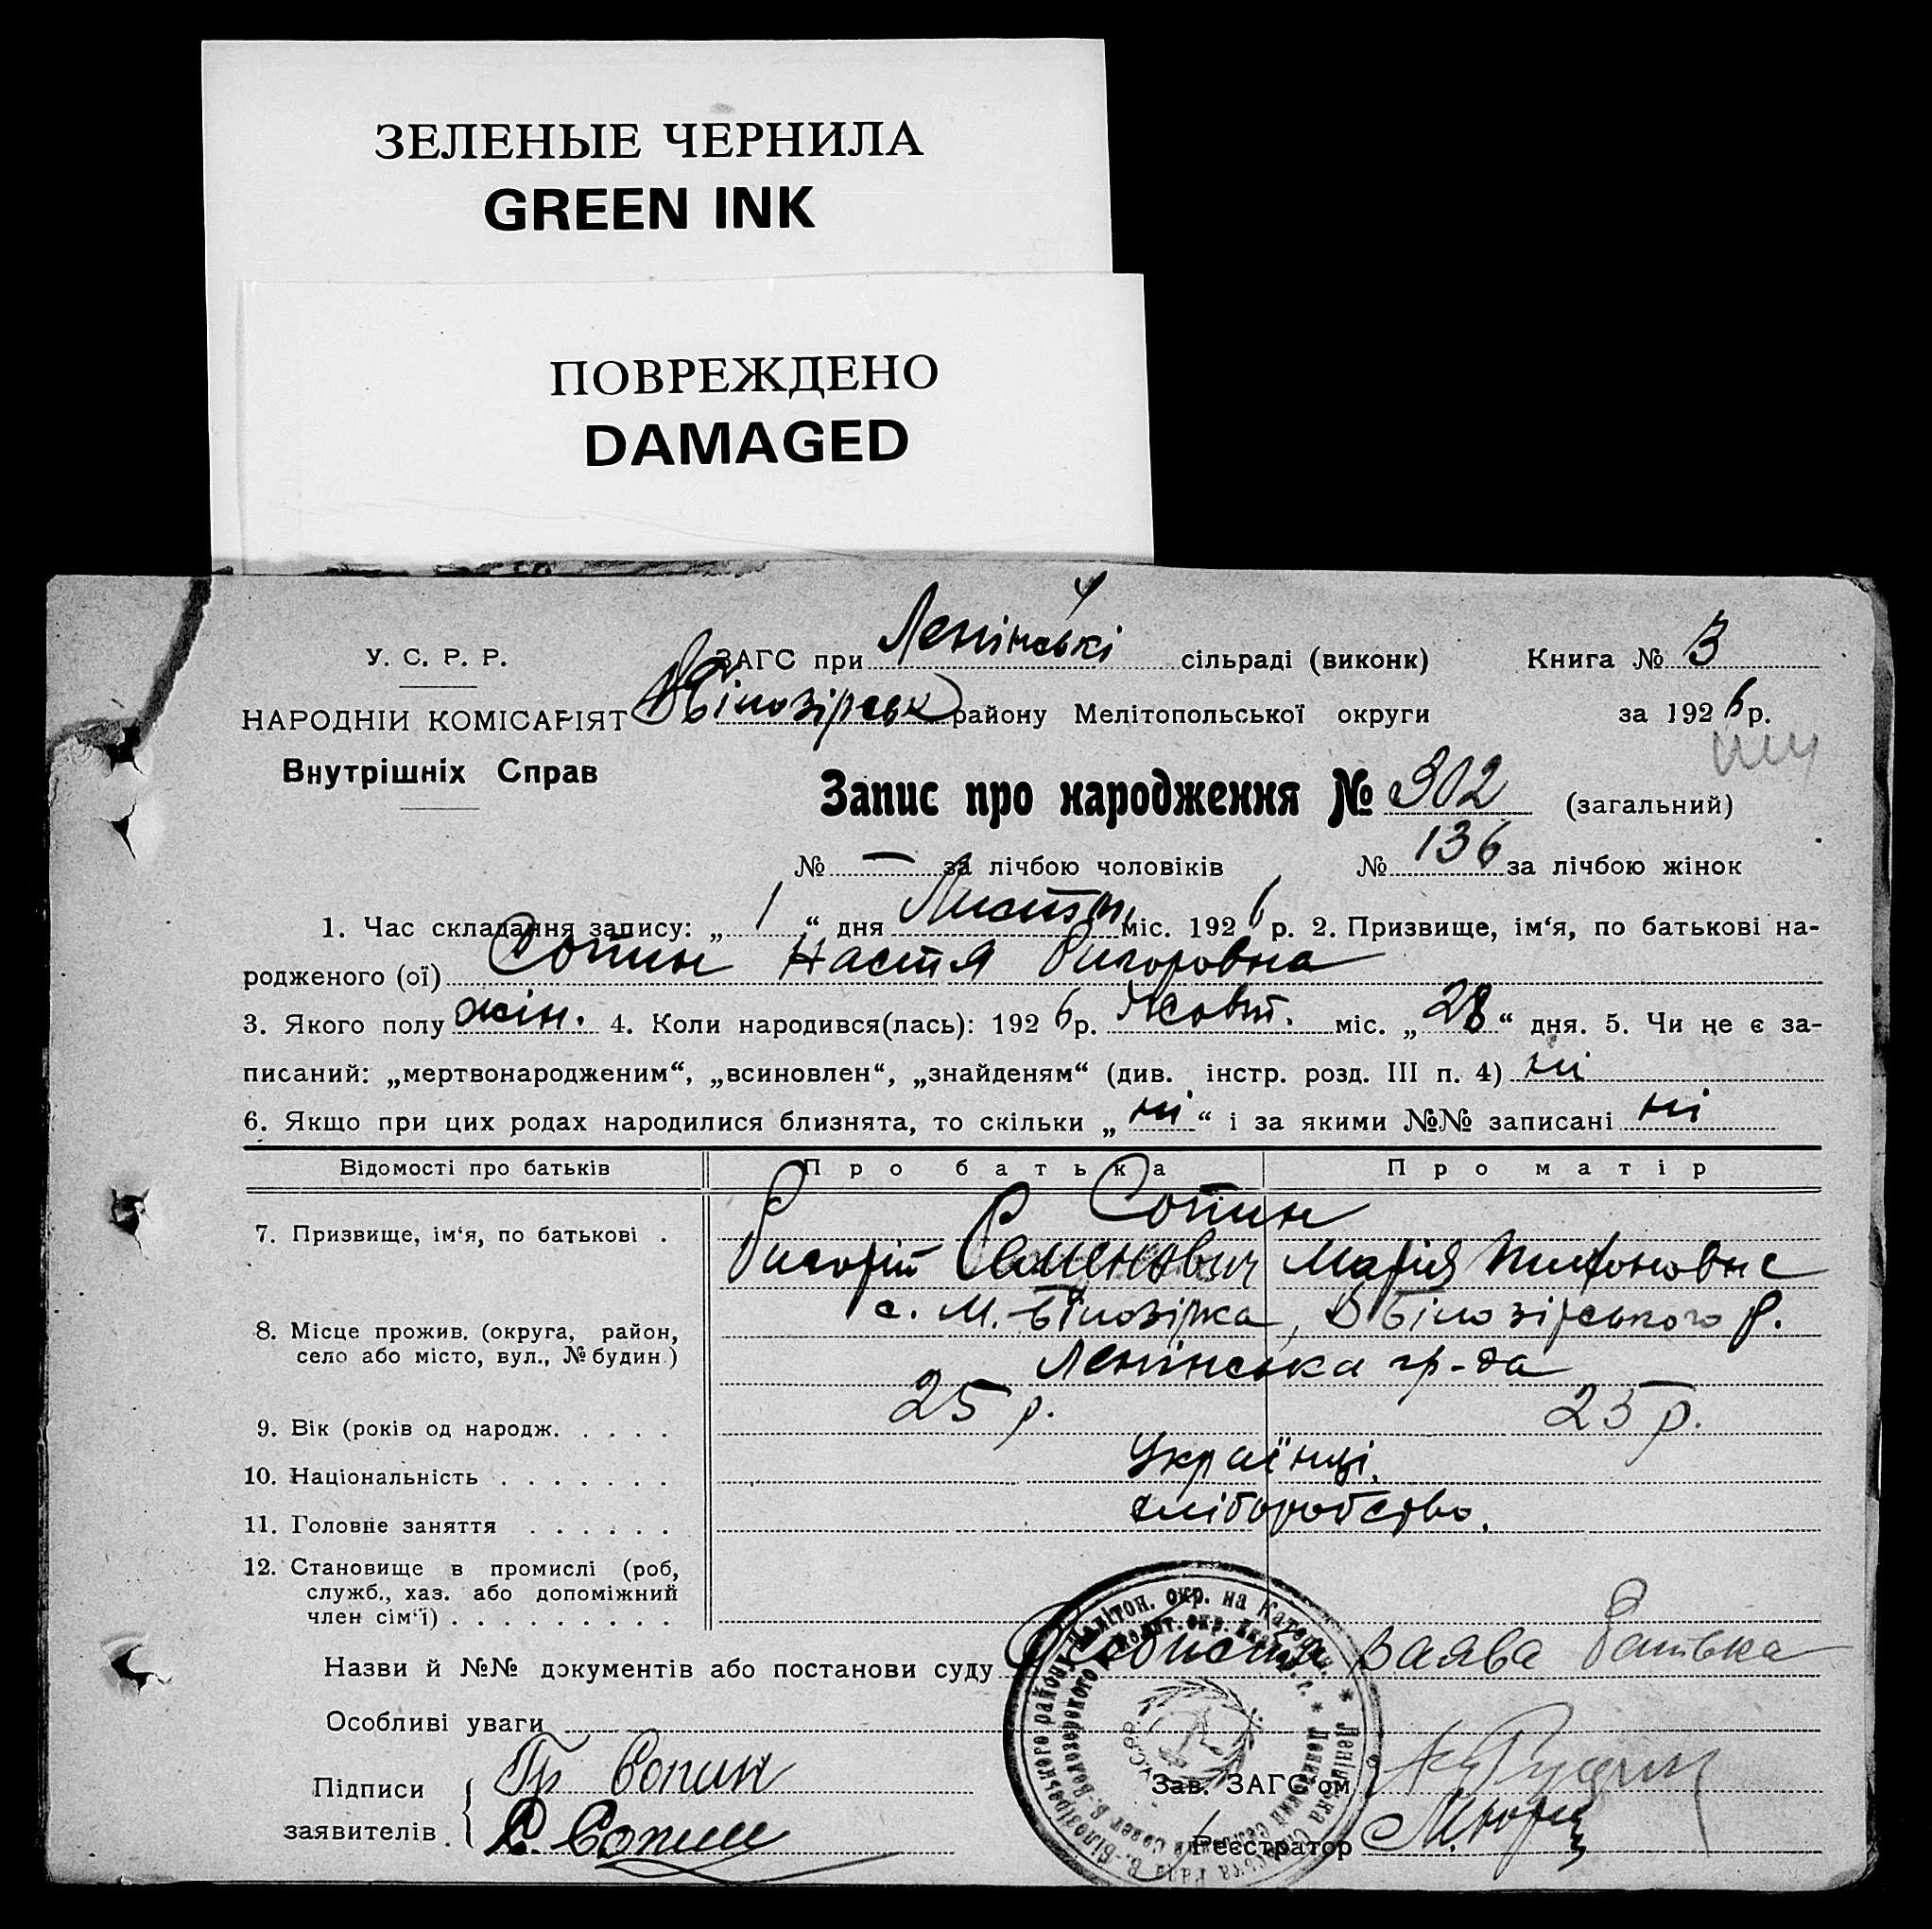 ЗЕЛЕНЫЕ ЧЕРНИЛА
GREEN INK
ПОВРЕЖДЕНО
DAMAGED
У. С. Р. Р.
НАРОДНІЙ КОМІСАРІЯТ
Внутрішніх Справ
ЗАГС при Ленінські сільраді (виконк) Книга № 3
В Білозірськ району Мелітопольської округи за 1926 р.
Запис про народження № 302 (загальний)
№ — за лічбою чоловіків № 136 за лічбою жінок
1. Час складання запису: „ 1 “ дня Листоп. міс. 1926 р. 2. Призвище, ім‘я, по батькові на-
родженого (ої) Сопин Настя Григоровна
3. Якого полу жін. 4. Коли народився(лась): 1926 р. Жовт. міс. „ 28 “ дня. 5. Чи не є за-
писаний: „мертвонародженим“, „всиновлен“, „знайденям“ (див. інстр. розд. III п. 4) ні
6. Якщо при цих родах народилися близнята, то скільки „ ні “ і за якими №№ записані ні
Відомості про батьків Про батька Про матір
Сопин
7. Призвище, ім‘я, по батькові . Григорій Семенович Марія
с. М.-Білозірка, В Білозірського р.
8. Місце прожив. (округа, район,
село або місто, вул., № будин.) Ленінська гр-да
9. Вік (років од народж. . . . . 25 р. 25 р.
10. Національність . . . . . . . Українці.
11. Головне заняття . . . . . . хліборобство.
12. Становище в промислі (роб,
служб., хаз. або допоміжний
член сім‘ї) . . . . . . . . .
Назви й №№ документів або постанови суду Заява батька
Особливі уваги
Підписи
заявителів . Гр Сопин
С. Сопин
Зав. ЗАГС‘ом
Реєстратор